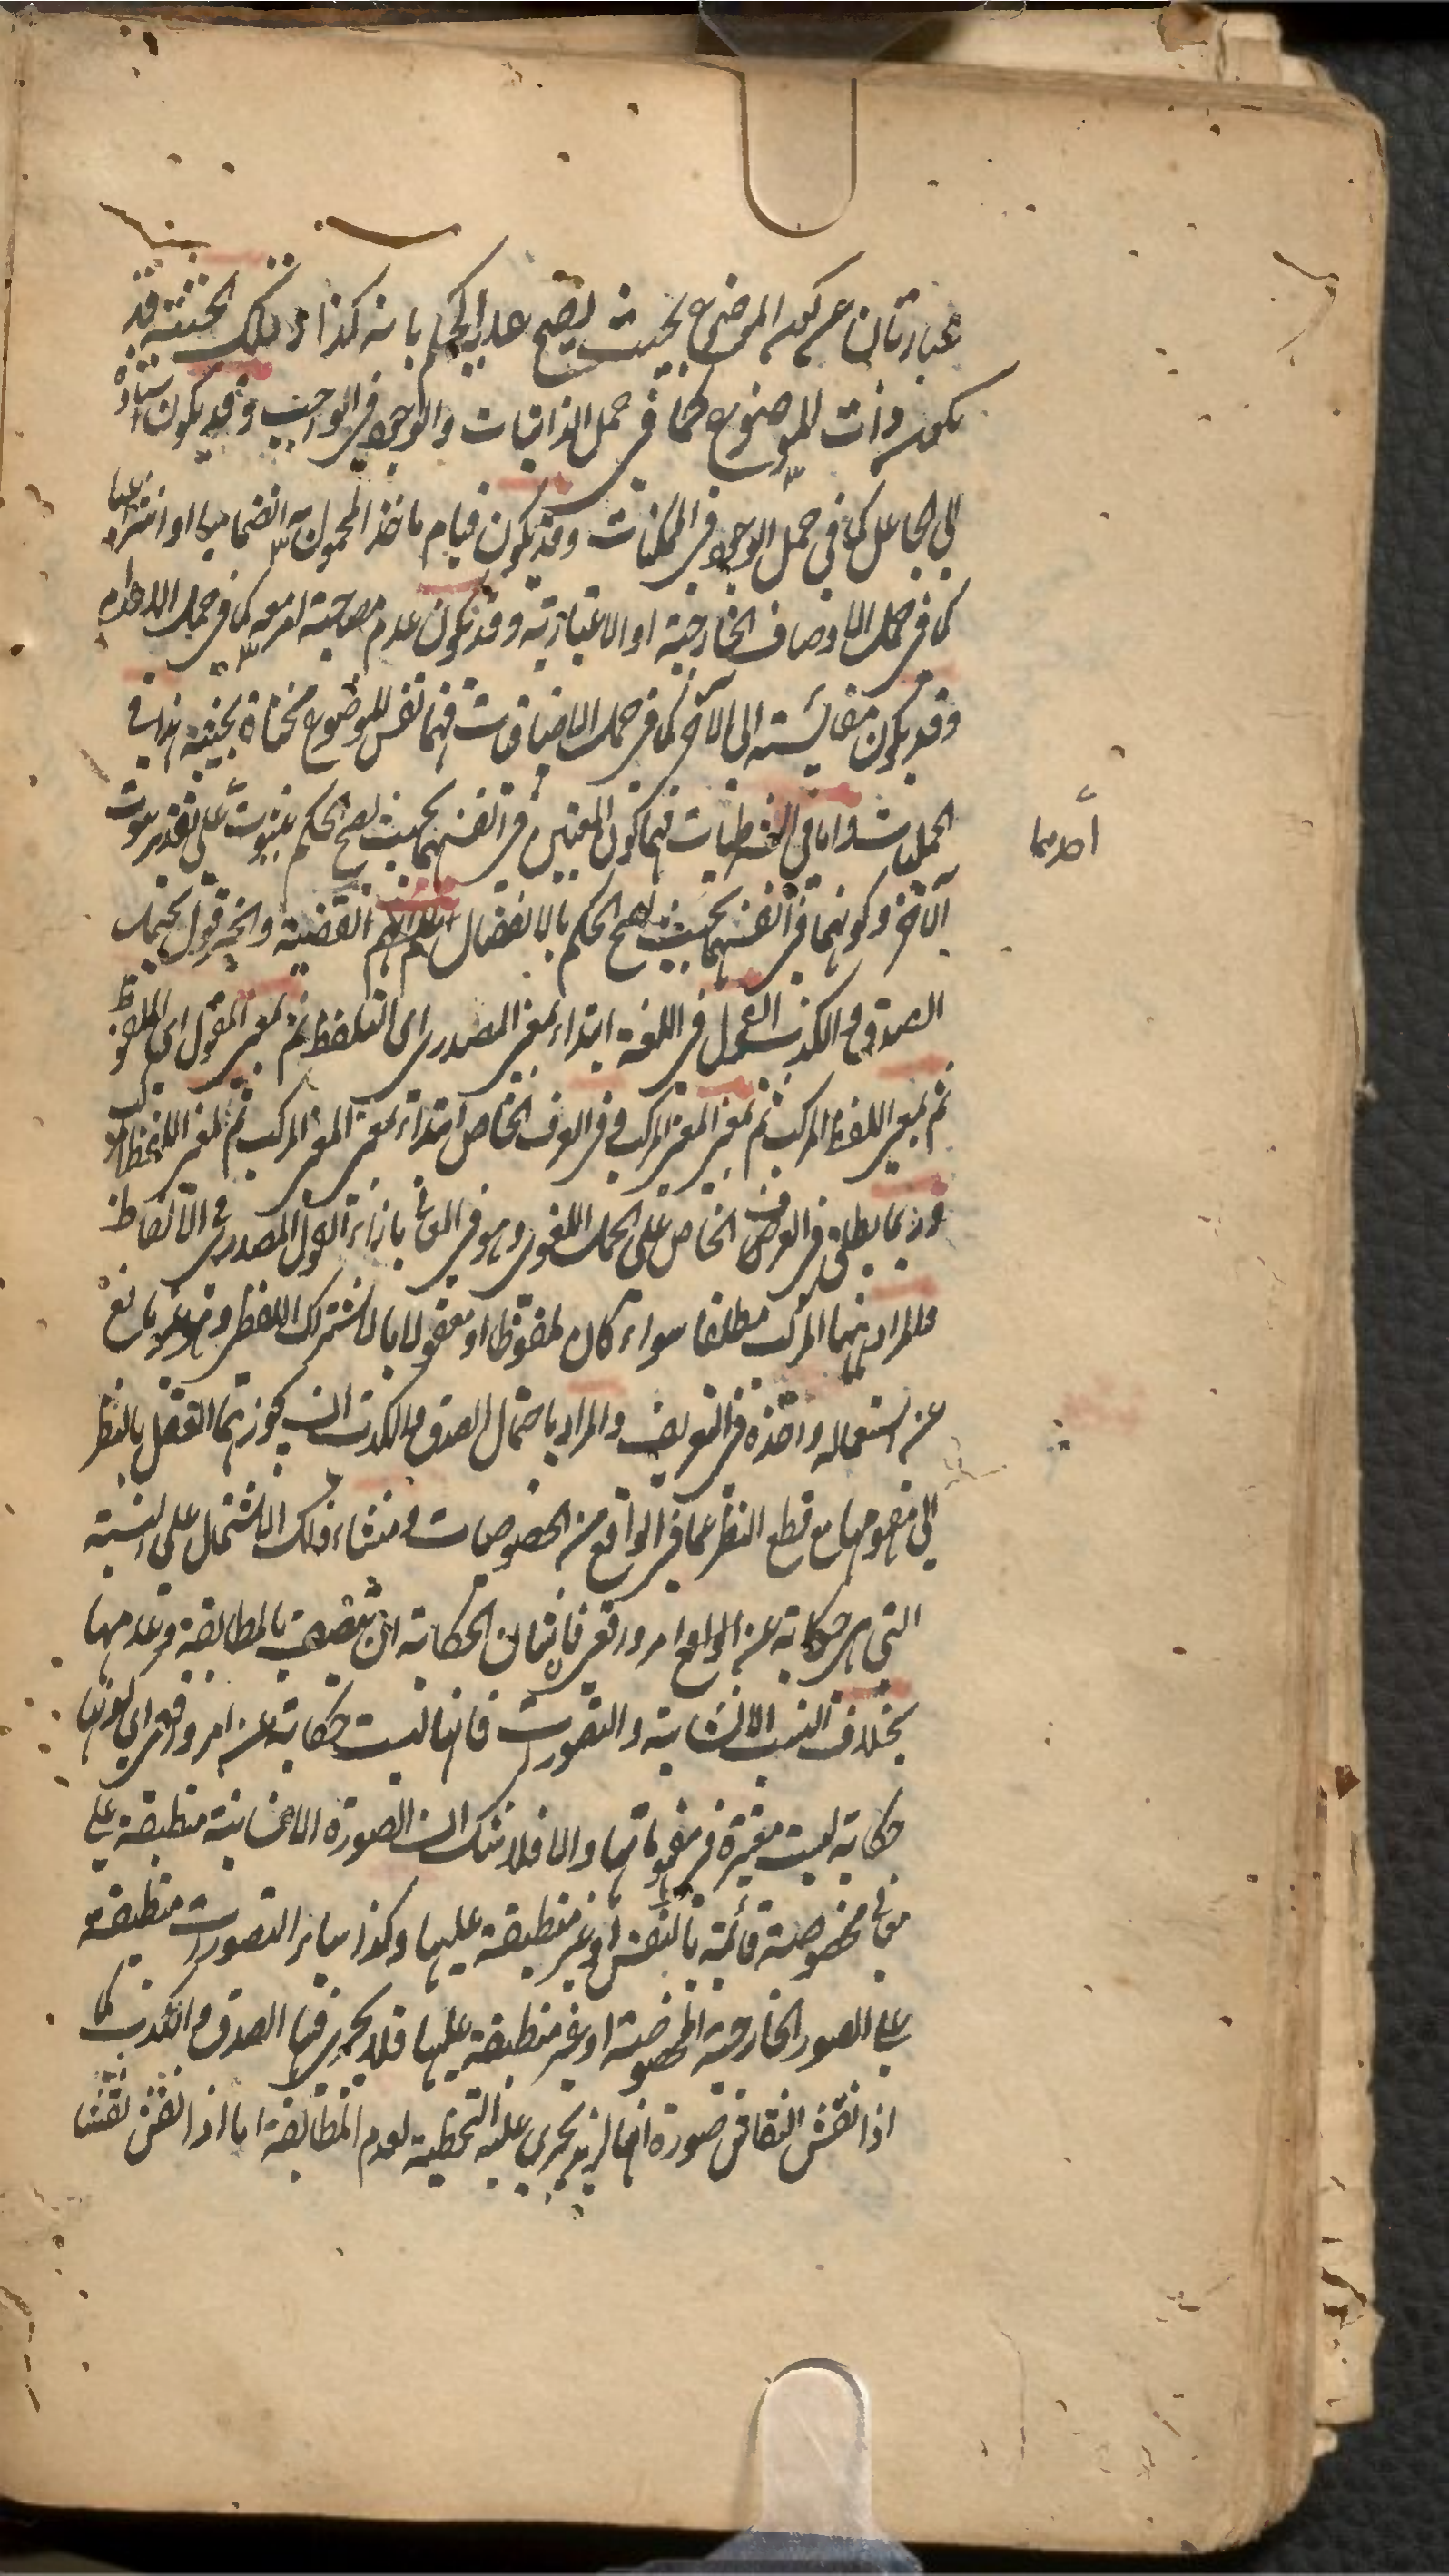 عبارتان عن كون الموضوع بحيث يصح عليه الحكم بانه كذا وتلك الحيثية قد
يكون ذات الموضوع كما في حمل الذاتيات والوجود في الواجب وقد يكون استناده
الى الجاعل كما في حمل الوجود في الممكنات وقد يكون قيام ماخذ المحمول به انضماميا او انتزاعيا
كما في حمل الاوصاف الخارجية او الاعتبارية وقد يكون عدم مصاحبته لمعه كما في حمل الاعدام
وقد يكون مقايسته الى الآخر كما في حمل الاضافات فهما نفس الموضوع محيثة بحيثية هذا في
الحمليات واما في الشرطيات فهما كون المعنيين في انفسهما بحيث يصح الحكم بثبوت على تقدير ثبوت
احدهما
الآخر وكونهما في انفسهما بحيث يصح الحكم بالانفصال القضية والخبر قول يحتمل
الصدق والكذب القول في اللغة ابتداء بمعنى المصدر اى التلفظ ثم بمعنى المقول اى الملفوظ
ثم بمعنى اللفظ المركب ثم بمعنى المعنى المركب وفي العرف الخاص ابتداء بمعنى المعنى المركب ثم بمعنى اللفظ المركب
وربما يطلق في العرف الخاص على الحمل اللغوى وهو في المعانى بازاء القول المصدرى في الالفاظ
والمراد ههنا المركب مطلقا سواء كان ملفوظا او معقولا بالاشتراك اللفظى وهو غير مانع
عن استعماله واخذه في التعريف والمراد باحتمال الصدق والكذب ان يجوزهما العقل بالنظر
الى مفهومها مع قطع النظر عما في الواقع من الخصوصيات ومنشاء ذلك الاشتمال على النسبة
التي هي حكاية عن الواقع امر واقعى فان شان الحكاية ان تتصف بالمطابقة وعدمها
بخلاف النسب الانشائية والتصورات فانها ليست حكاية عن امر واقعى اى كونها
حكاية ليست معتبرة في مفهوماتها والا فلا شك ان الصورة الانشائية منطبقة على
معانى مخصوصة قائمة بالنفس او غير منطبقة عليها وكذا سائر التصورات منطبقة
على الصور الخارجية المخصوصة او غير منطبقة عليها فلا يجرى فيها الصدق والكذب كما
اذا نقش النقاش صورة انها لزيد يجرى عليه التخطية لعدم المطابقة اما اذا نقش نقشا